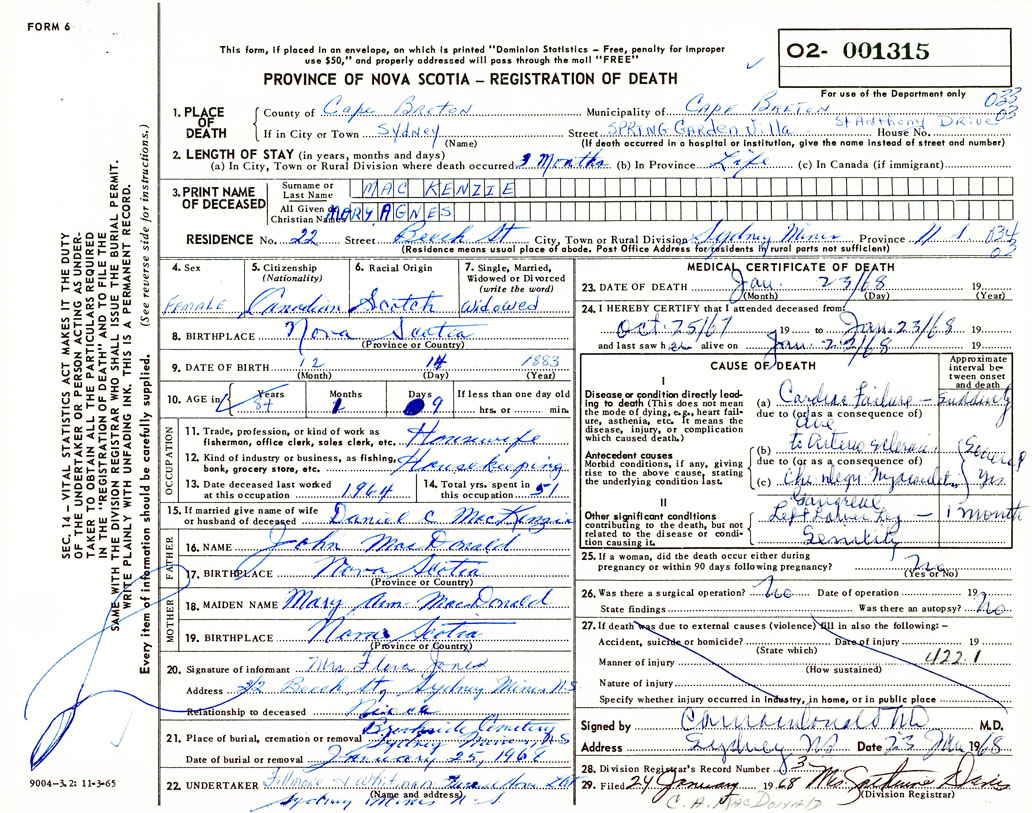 FORM 6
This form, if placed in an envelope, on which is printed "Dominion Statistics – Free, penalty for improper
use $50," and properly addressed will pass through the mail "FREE"
PROVINCE OF NOVA SCOTIA – REGISTRATION OF DEATH
02- 001315
For use of the Department only
033
03
1. PLACE OF DEATH
County of Cape Breton Municipality of CAPE BRETON
If in City or Town SYDNEY Street SPRING Garden Villa House No. St Anthony Drive
(Name) (If death occurred in a hospital or institution, give the name instead of street and number)
2. LENGTH OF STAY (in years, months and days)
(a) In City, Town or Rural Division where death occurred 3 Months (b) In Province Life (c) In Canada (if immigrant)
3. PRINT NAME OF DECEASED
Surname or Last Name MAC KENZIE
All Given or Christian Names MARY AGNES
RESIDENCE No. 22 Street Beech St City, Town or Rural Division Sydney Mines Province N S 034
03
(Residence means usual place of abode. Post Office Address for residents in rural parts not sufficient)
4. Sex
FEMALE
5. Citizenship
(Nationality)
Canadian
6. Racial Origin
Scotch
7. Single, Married, Widowed or Divorced
(write the word)
Widowed
8. BIRTHPLACE Nova Scotia
(Province or Country)
9. DATE OF BIRTH 12 14 1883
(Month) (Day) (Year)
10. AGE in Years 84 Months 1 Days 9 If less than one day old
hrs. or min.
OCCUPATION
11. Trade, profession, or kind of work as
fisherman, office clerk, sales clerk, etc. Housewife
12. Kind of industry or business, as fishing,
bank, grocery store, etc. Housekeeping
13. Date deceased last worked
at this occupation 1964
14. Total yrs. spent in
this occupation 51
15. If married give name of wife
or husband of deceased Daniel C MacKenzie
FATHER
16. NAME John MacDonald
17. BIRTHPLACE Nova Scotia
(Province or Country)
MOTHER
18. MAIDEN NAME Mary Ann MacDonald
19. BIRTHPLACE Nova Scotia
(Province or Country)
20. Signature of informant Mrs Flora Jones
Address Beech St, Sydney Mines N.S
Relationship to deceased Niece
21. Place of burial, cremation or removal Brookside Cemetery
Sydney Mines N.S
Date of burial or removal January 25, 1968
22. UNDERTAKER Fillmore & Whitman Funeral Home Ltd
(Name and address)
Sydney Mines N.S
MEDICAL CERTIFICATE OF DEATH
23. DATE OF DEATH Jan. 23/68 19
(Month) (Day) (Year)
24. I HEREBY CERTIFY that I attended deceased from:
Oct. 25/67 19 to Jan. 23/68 19
and last saw her alive on Jan. 23/68 19
CAUSE OF DEATH
Approximate interval between onset and death
I
Disease or condition directly leading to death (This does not mean the mode of dying, e.g., heart failure, asthenia, etc. It means the disease, injury, or complication which caused death.)
(a) Cardiac Failure – Suddenly
due to (or as a consequence of)
due
Antecedent causes
Morbid conditions, if any, giving rise to the above cause, stating the underlying condition last.
(b) to Arterio sclerosis
due to (or as a consequence of)
(c) Chr.
Several
Yrs
II
Other significant conditions contributing to the death, but not related to the disease or condition causing it.
Gangrene
Left Lower Leg – 1 month
Senility
25. If a woman, did the death occur either during
pregnancy or within 90 days following pregnancy? No
(Yes or No)
26. Was there a surgical operation? No Date of operation 19
State findings Was there an autopsy? No
27. If death was due to external causes (violence) fill in also the following:–
Accident, suicide or homicide? Date of injury 19
(State which)
Manner of injury 422.1
(How sustained)
Nature of injury
Specify whether injury occurred in industry, in home, or in public place
Signed by C A MacDonald MD M.D.
Address Sydney NS Date 23 Jan 1968
28. Division Registrar's Record Number 63
29. Filed 24 January 1968 Mrs
(Division Registrar)
C. A. MACDONALD
SEC. 14 – VITAL STATISTICS ACT MAKES IT THE DUTY
OF THE UNDERTAKER OR PERSON ACTING AS UNDER-
TAKER TO OBTAIN ALL THE PARTICULARS REQUIRED
IN THE "REGISTRATION OF DEATH" AND TO FILE THE
SAME WITH THE DIVISION REGISTRAR WHO SHALL ISSUE THE BURIAL PERMIT.
WRITE PLAINLY WITH UNFADING INK. THIS IS A PERMANENT RECORD.
Every item of information should be carefully supplied. (See reverse side for instructions.)
9004–3.2: 11-3-65